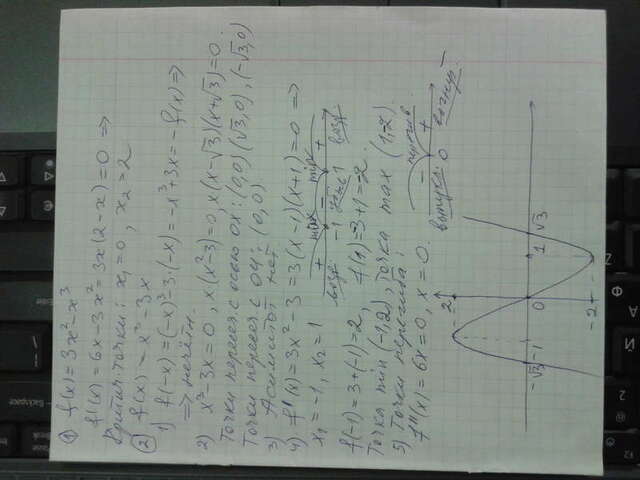 ① f(x) = 3x²-x³
f'(x) = 6x-3x² = 3x(2-x) = 0 ⇒
Критич. точки: x₁=0, x₂=2
② f(x) = x³-3x
1) f(-x) = (-x)³-3·(-x) = -x³+3x = -f(x) ⇒
⇒ нечётн.
2) x³-3x=0, x(x²-3)=0, x(x-√3)(x+√3)=0
Точки пересеч. с осью ОХ: (0,0) (√3,0), (-√3,0)
Точки пересеч. с ОУ: (0,0)
3) Асимптот нет
4) f'(x) = 3x²-3 = 3(x-1)(x+1) = 0 ⇒
x₁=-1, x₂=1
+ max - min +
возр. -1 1 возр.
f(-1) = 3+(-1)=2, f(1)=-3+1=-2
Точка min (-1,2), точка max (1,-2)
5) Точки перегиба:
f''(x) = 6x = 0, x = 0.
- +
0
2
-√3 -1 0 1 √3
-2